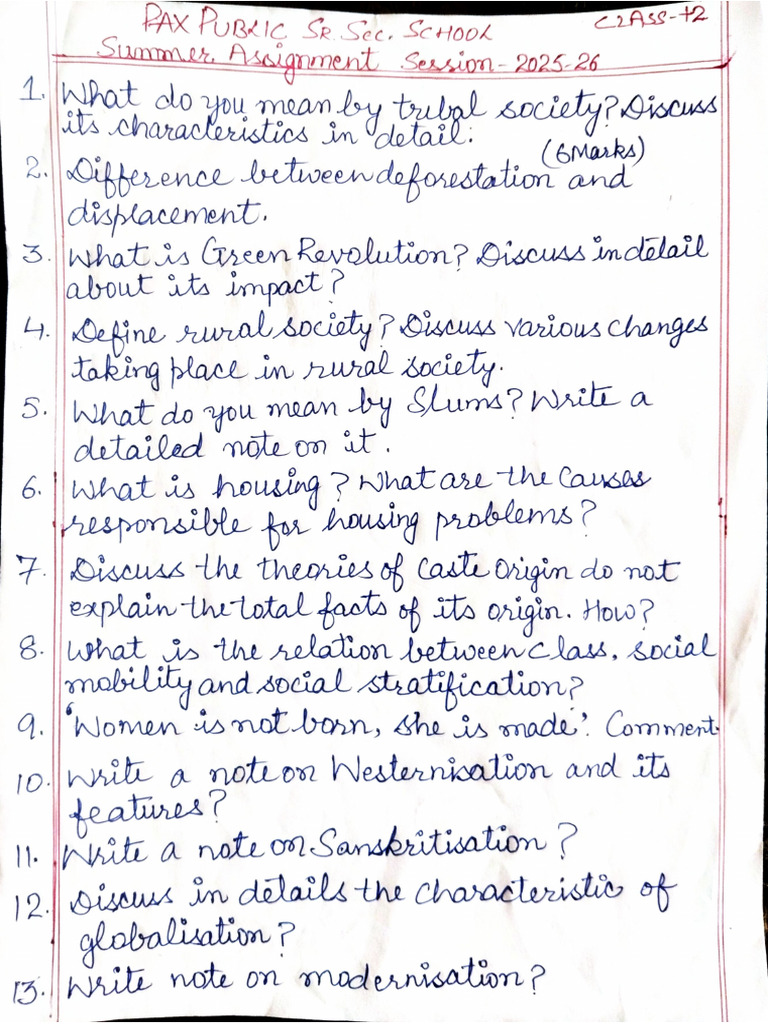 PAX PUBLIC SR. SEC. SCHOOL CLASS-+2
Summer Assignment Session-2025-26
1. What do you mean by tribal society? Discuss
its characteristics in detail.
(6Marks)
2. Difference between deforestation and
displacement.
3. What is Green Revolution? Discuss in detail
about its impact?
4. Define rural society? Discuss various changes
taking place in rural society.
5. What do you mean by Slums? Write a
detailed note on it.
6. What is housing? What are the causes
responsible for housing problems?
7. Discuss the theories of caste origin do not
explain the total facts of its origin. How?
8. What is the relation between class, social
mobility and social stratification?
9. 'Women is not born, she is made'. Comment.
10. Write a note on Westernisation and its
features?
11. Write a note on Sanskritisation?
12. Discuss in details the characteristic of
globalisation?
13. Write note on modernisation?